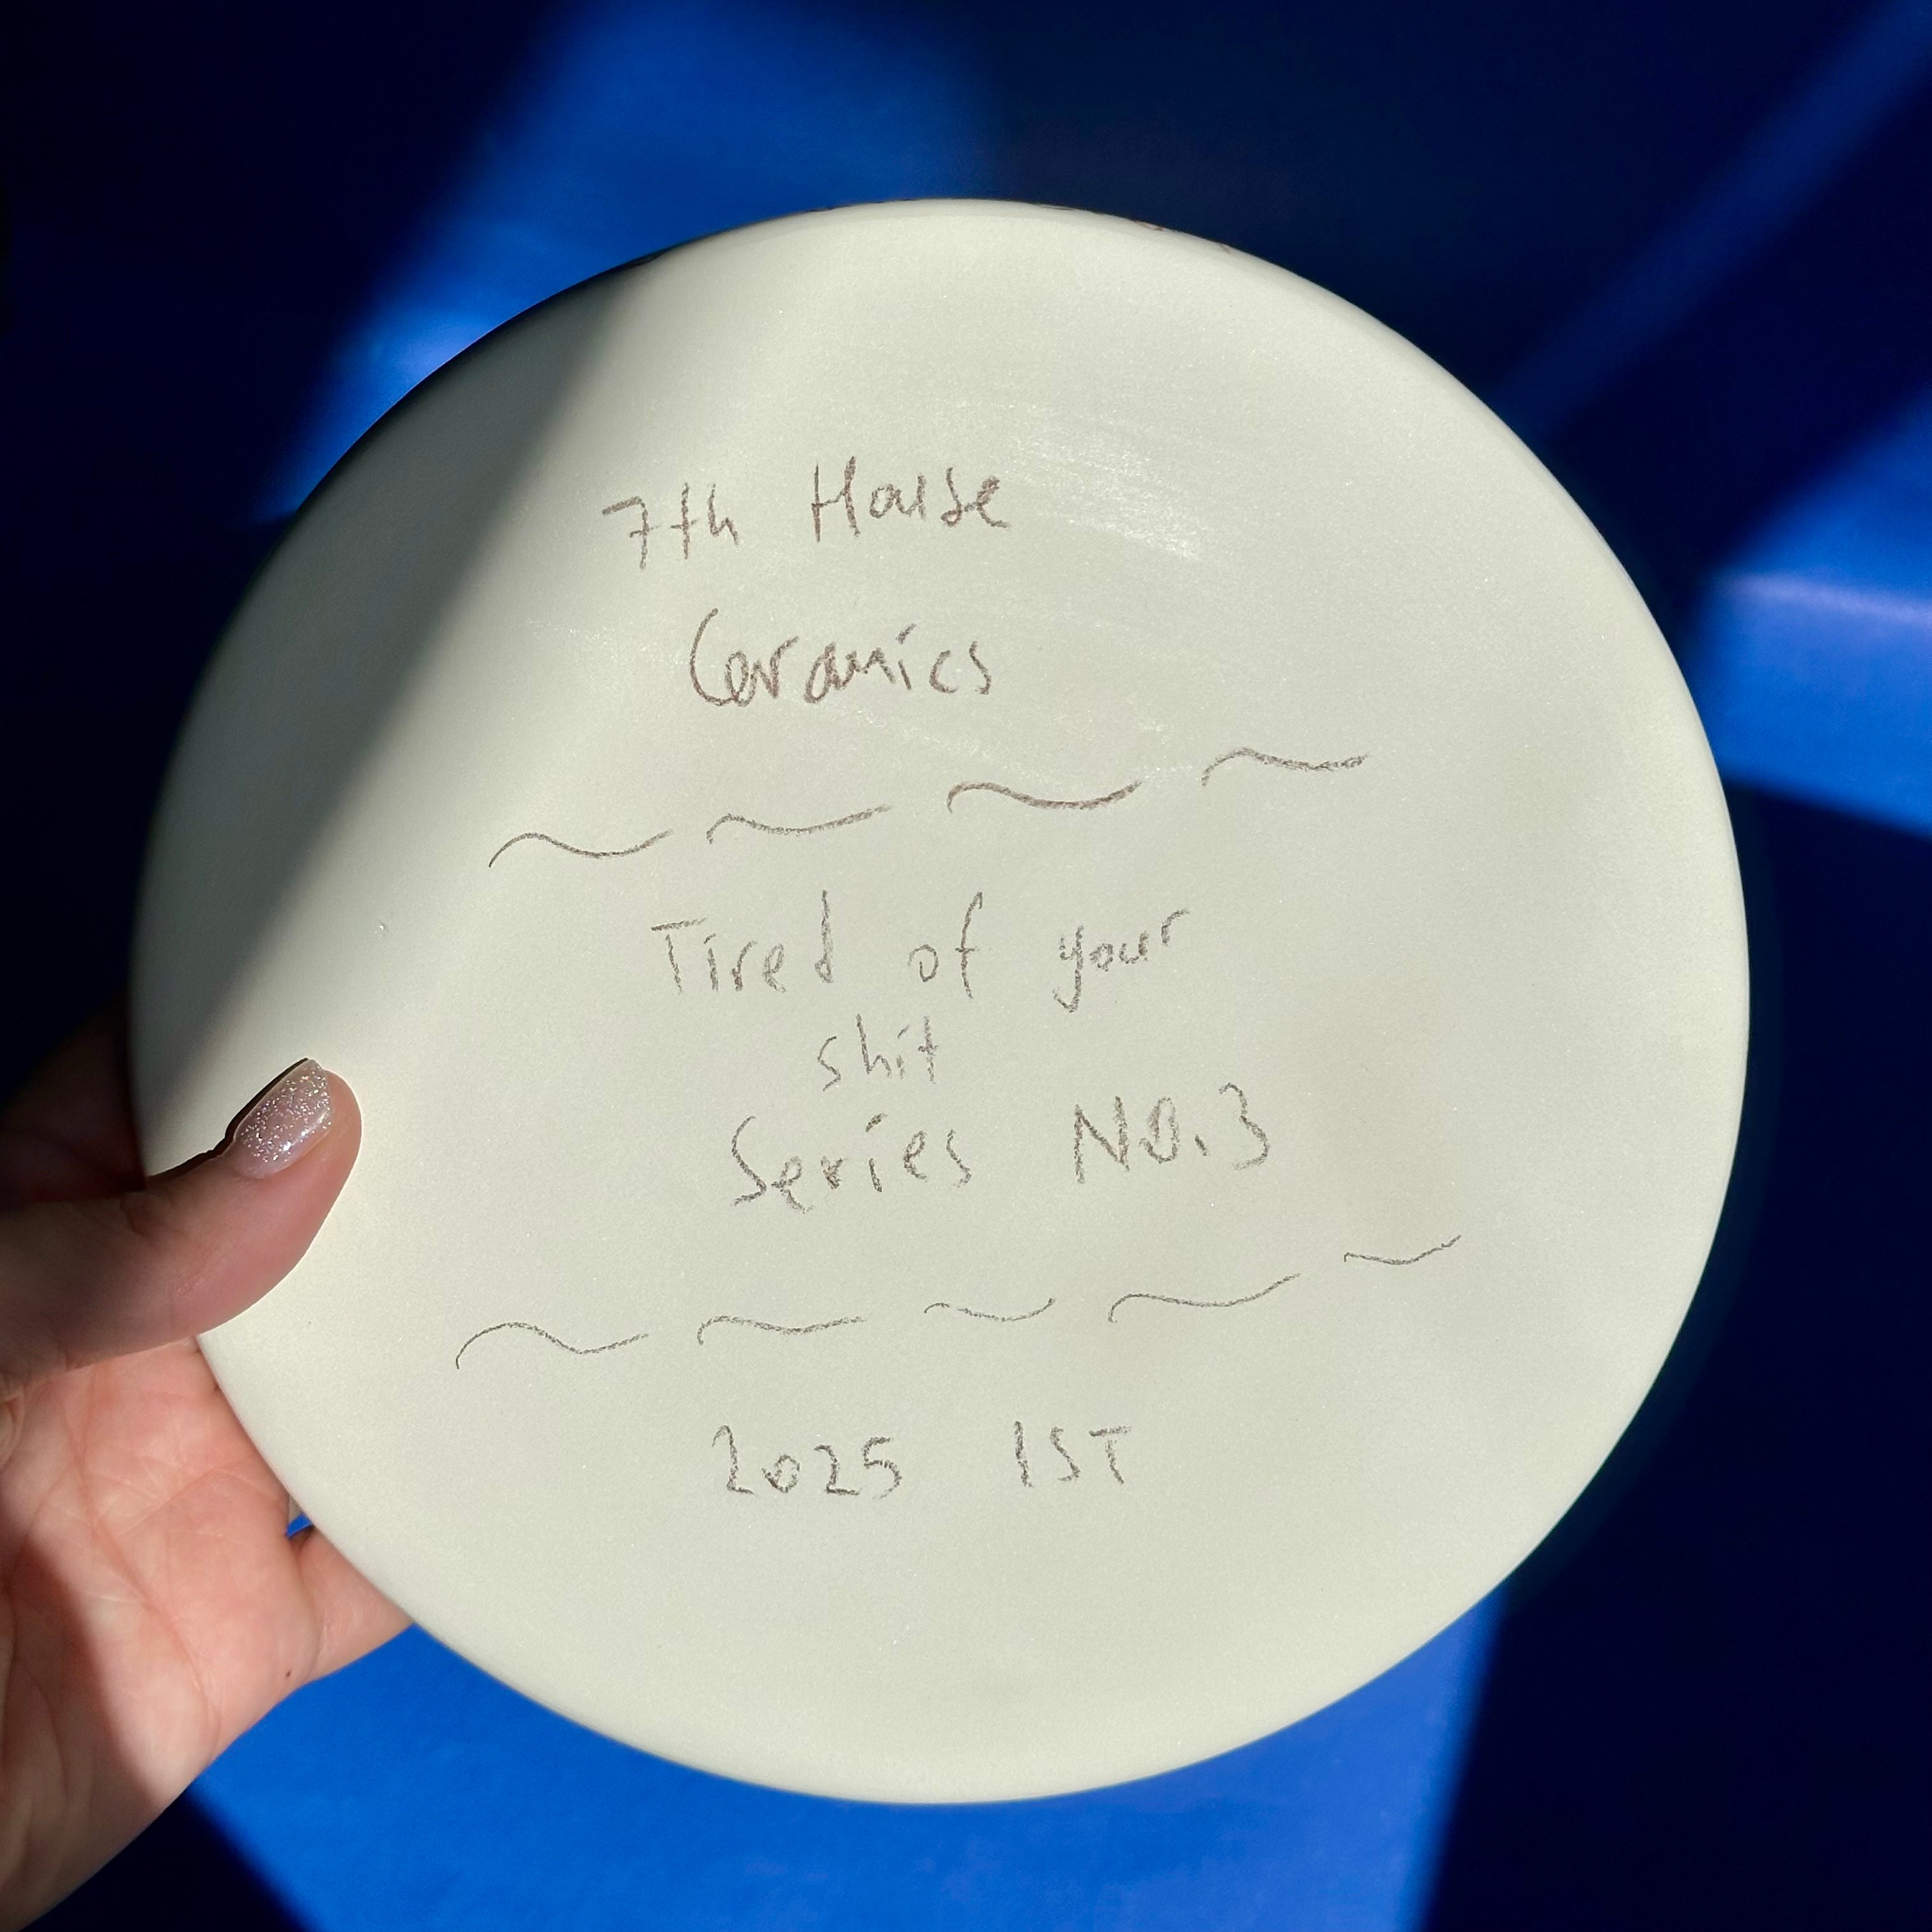 7th House
Ceramics
Tired of your
shit
Series No.3
2025 IST